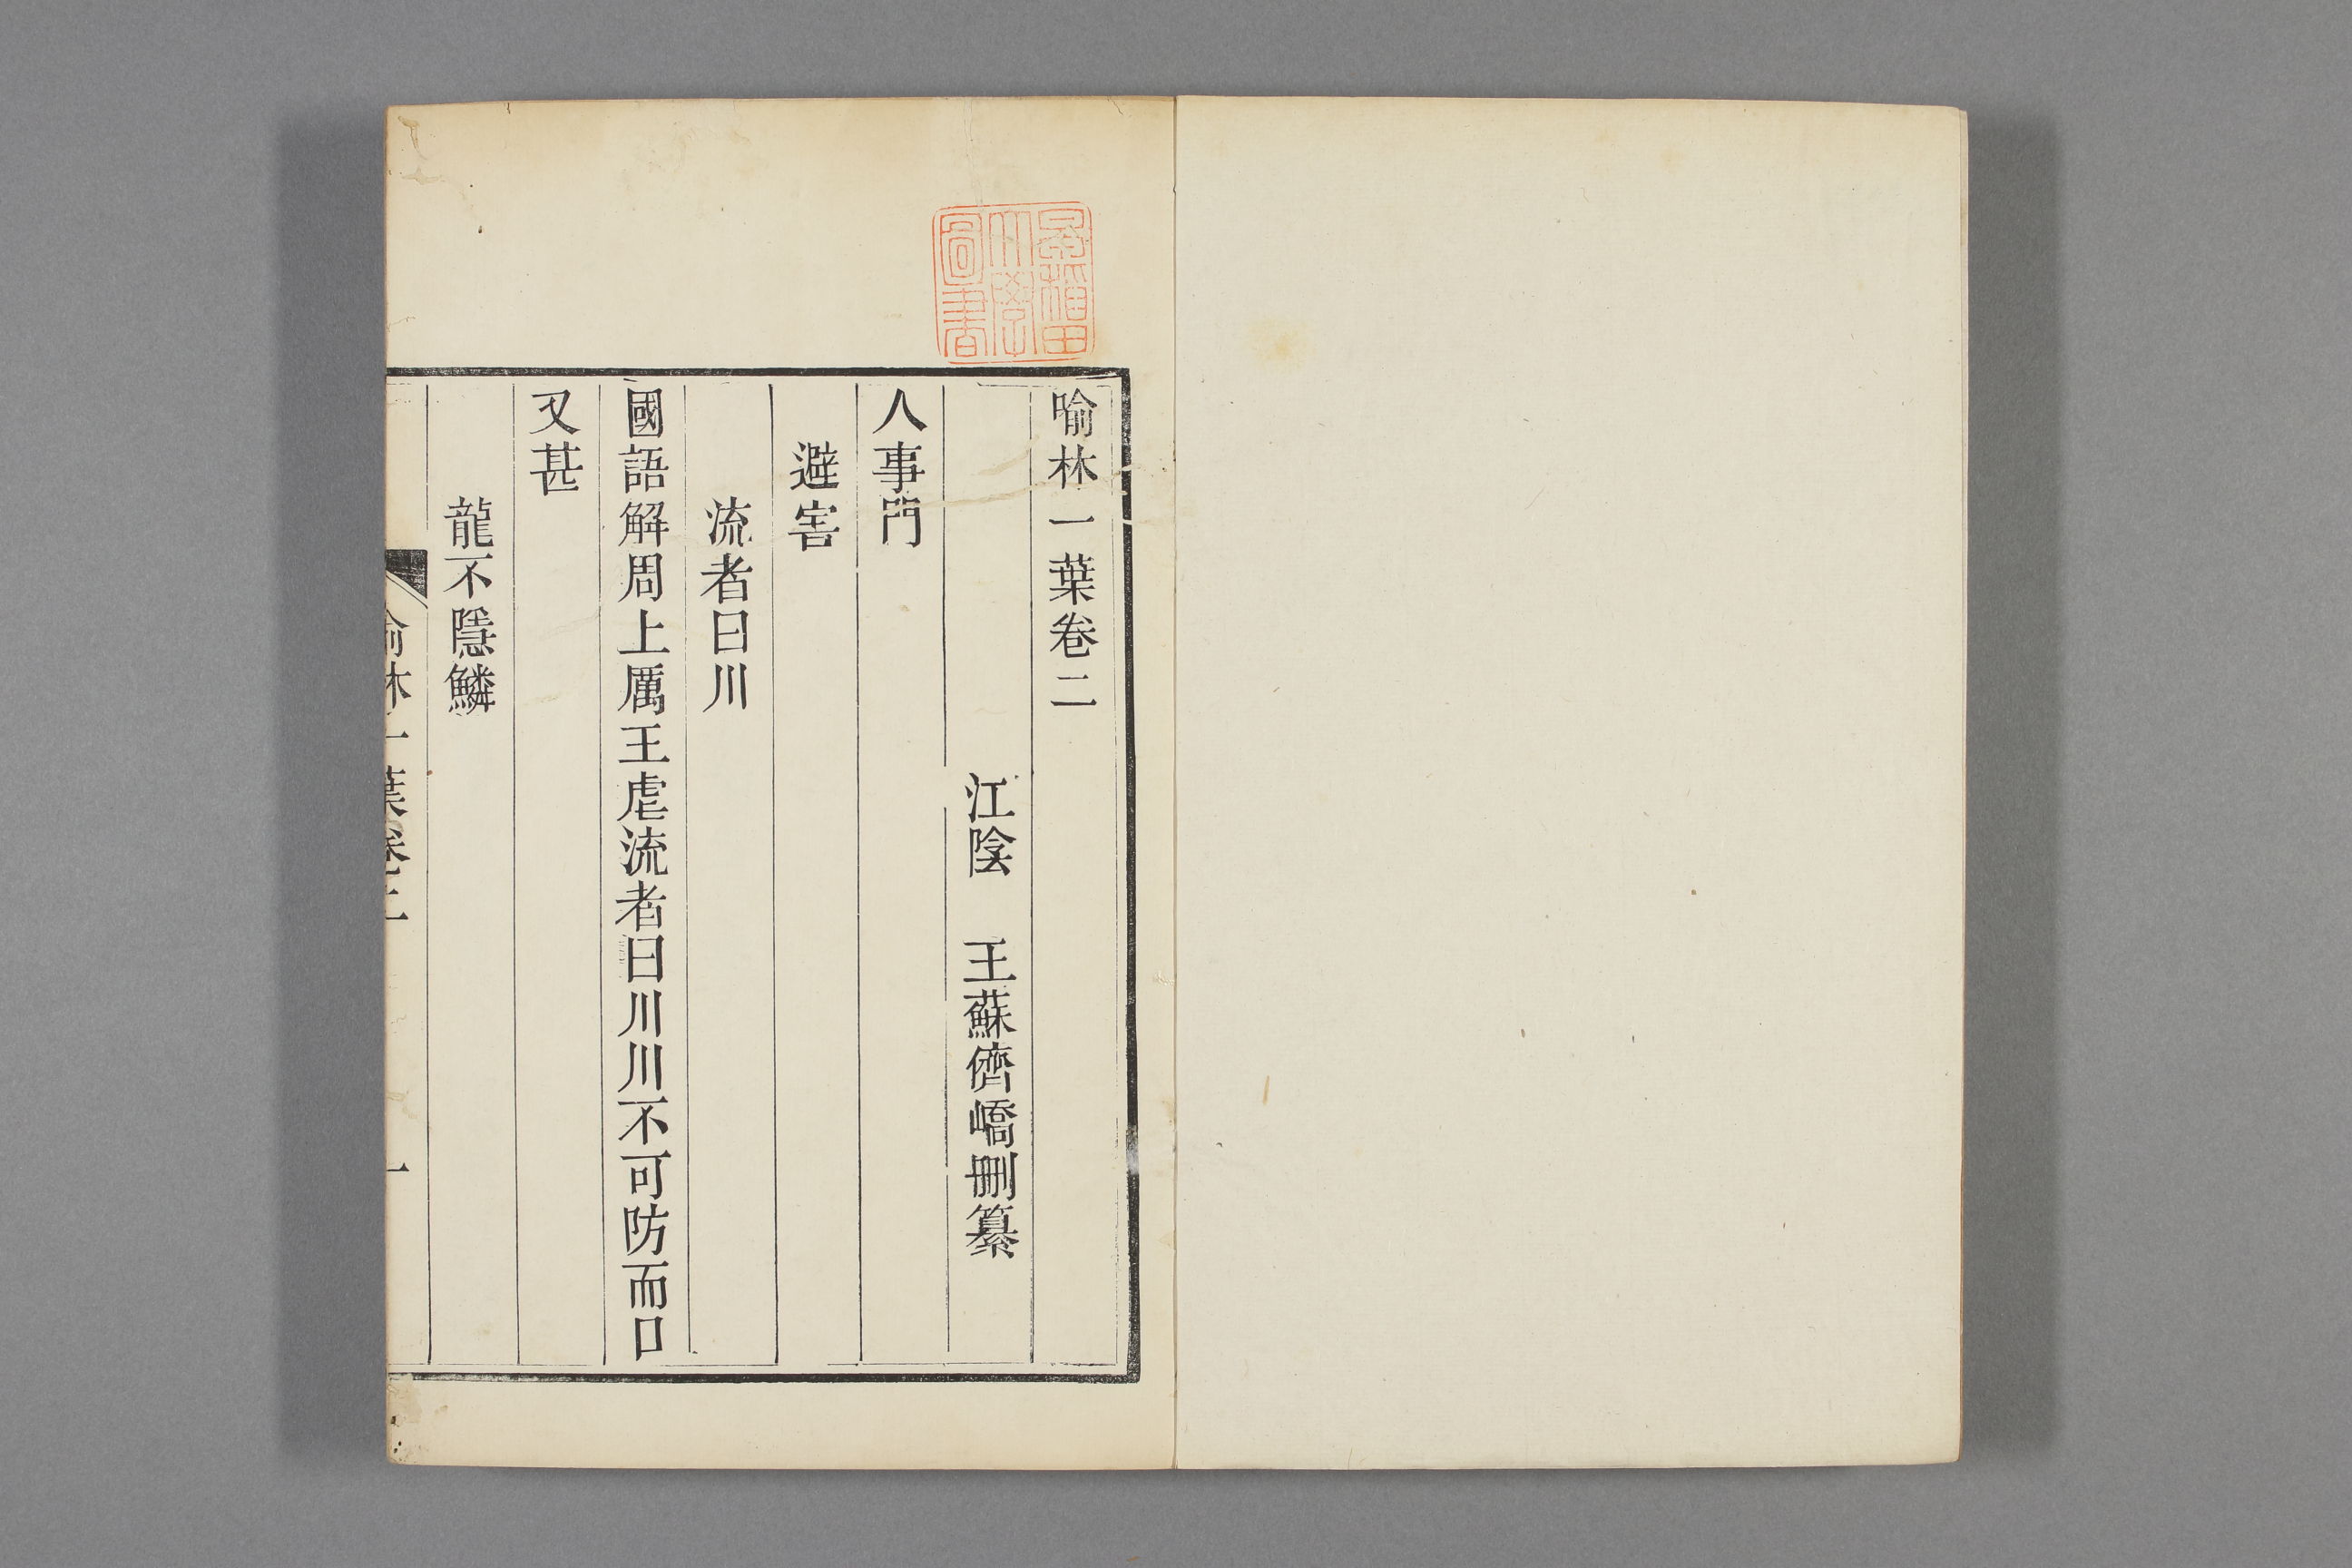 喻林一葉卷二
江陰　王蘇儕嶠删纂
人事門
避害
流者曰川
國語解周上厲王虐流者曰川川不可防而口
又甚
龍不隱鱗
喻林一葉卷二
一
早稲田
大學
圖書